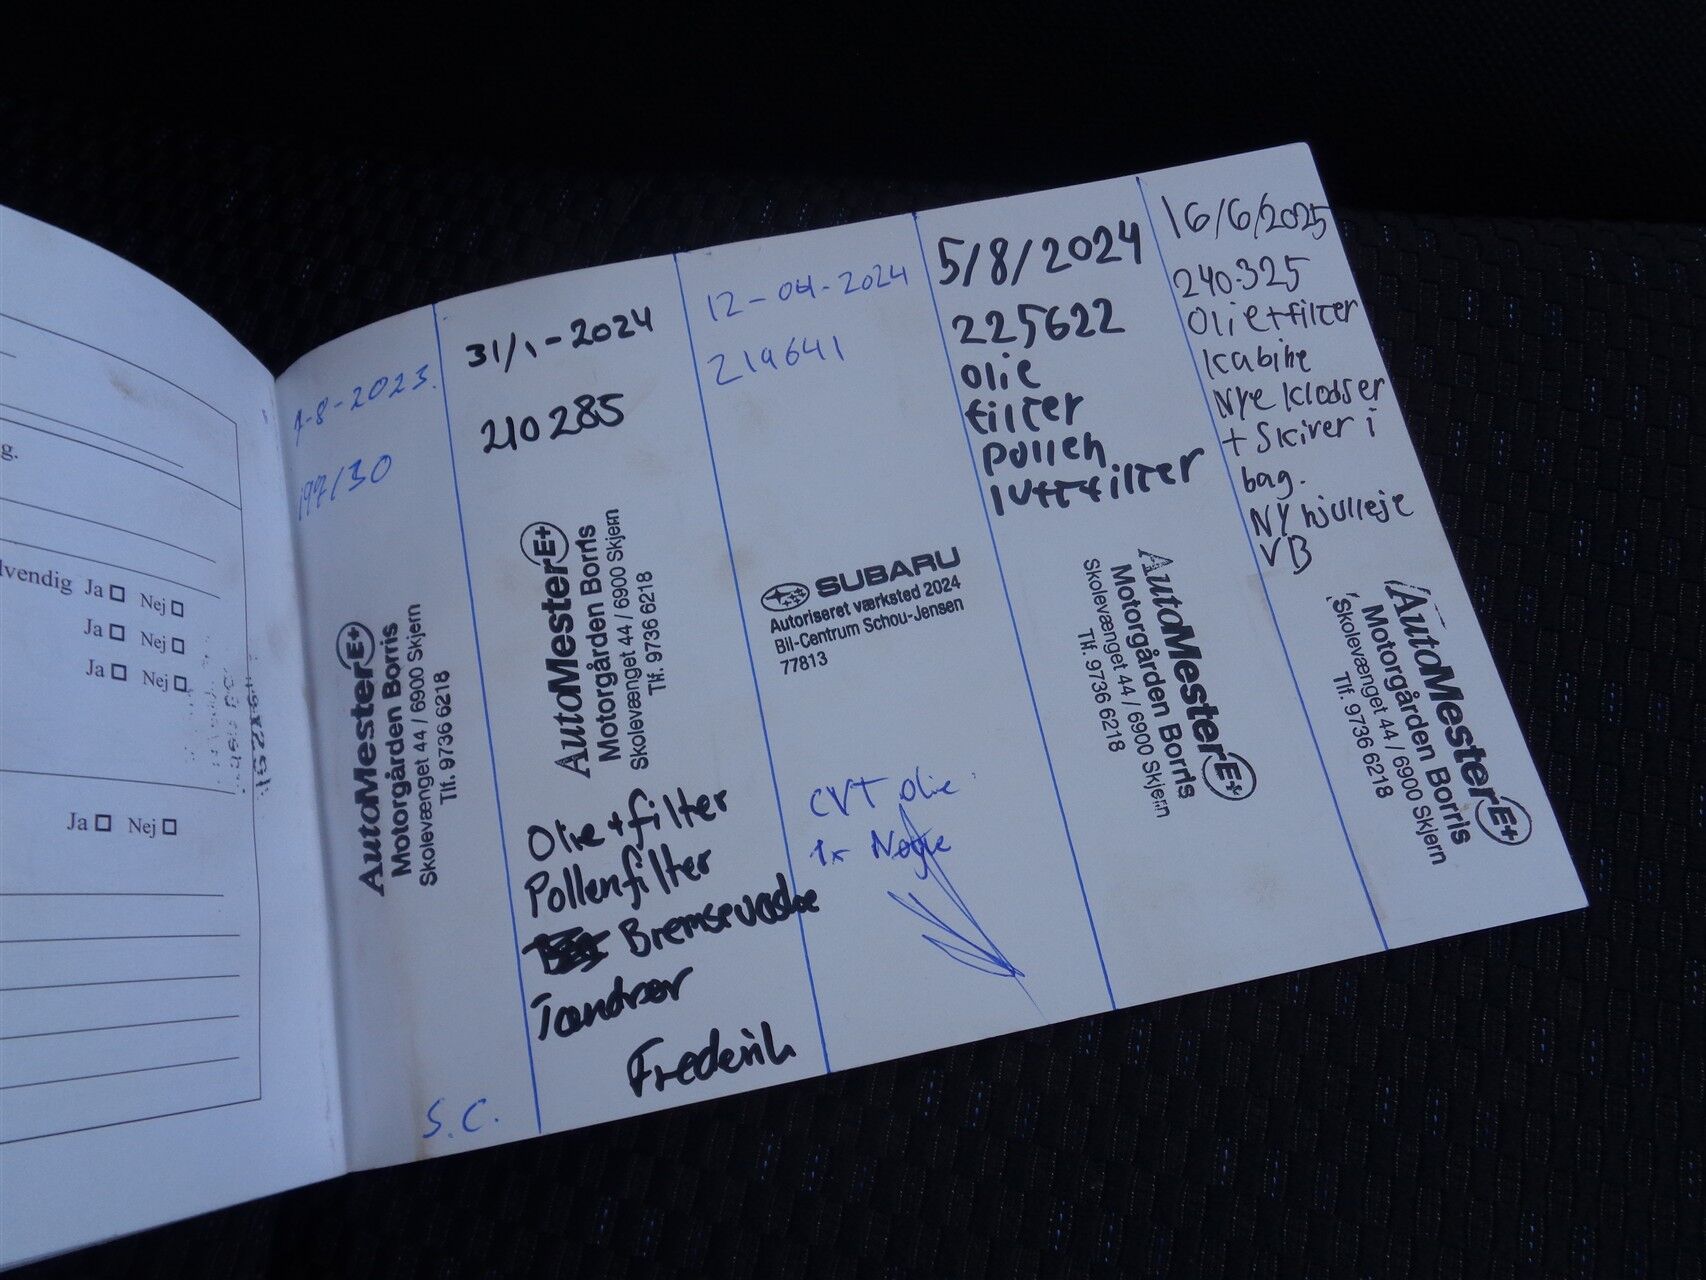 g.
lvendig Ja Nej
Ja Nej
Ja Nej
Ja Nej
-8-2023.
S.C.
AutoMester E+
Motorgården Borris
Skolevænget 44 / 6900 Skjern
Tlf. 9736 6218
31/1-2024
210285
AutoMester E+
Motorgården Borris
Skolevænget 44 / 6900 Skjern
Tlf. 9736 6218
Olie + filter
Pollenfilter
Bremsevæske
Tændrør
Frederik
12-04-2024
219641
SUBARU
Autoriseret værksted 2024
Bil-Centrum Schou-Jensen
77813
CVT olie
1x Nøgle
5/8/2024
225622
olie
filter
pollen
luftfilter
AutoMester E+
Motorgården Borris
Skolevænget 44 / 6900 Skjern
Tlf. 9736 6218
16/6/2025
240.325
Olie+filter
kabine
Nye klodser
+ skiver i
bag.
NY hjulleje
VB
AutoMester E+
Motorgården Borris
Skolevænget 44 / 6900 Skjern
Tlf. 9736 6218